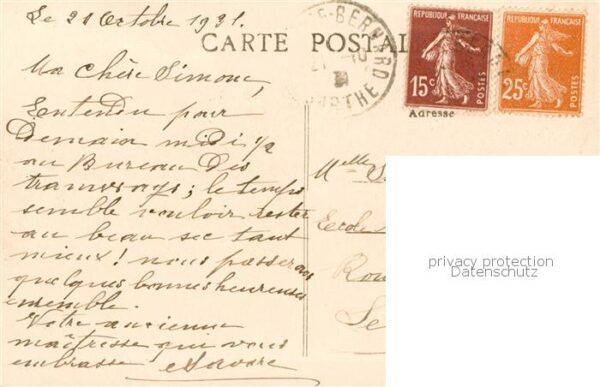 Le 21 Octobre 1931.
CARTE POSTAL
REPUBLIQUE FRANÇAISE
15c
POSTES
REPUBLIQUE FRANÇAISE
25c
POSTES
E-BERNARD
SARTHE
Adresse
Ma Chère Simone,
Entendu pour
Demain midi 1/2
au Bureau Des
tramways; le temps
semble vouloir rester
au beau sec tant
mieux! nous passerons
quelques bonnes heures
ensemble.
Votre ancienne
maîtresse qui vous
embrasse
Melle S
Ecole
Rou
Le
privacy protection
Datenschutz